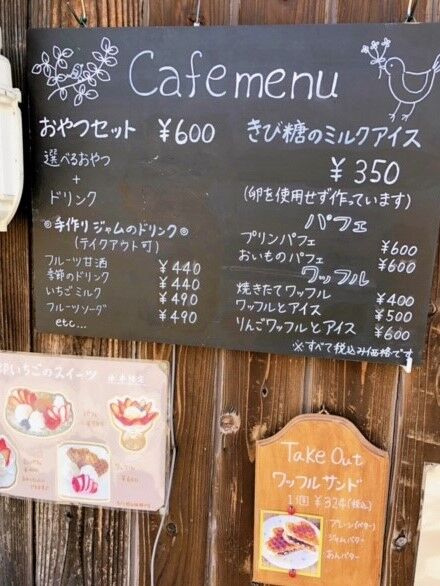 Cafe menu
おやつセット ¥600
選べるおやつ
+
ドリンク
◎手作りジャムのドリンク◎
(テイクアウト可)
フルーツ甘酒 ¥440
季節のドリンク ¥440
いちごミルク ¥490
フルーツソーダ ¥490
etc...
きび糖のミルクアイス
¥350
(卵を使用せず作っています)
パフェ
プリンパフェ ¥600
おいものパフェ ¥600
ワッフル
焼きたてワッフル ¥400
ワッフルとアイス ¥500
りんごワッフルとアイス ¥600
※すべて税込み価格です
いちごのスイーツ
Take Out
ワッフルサンド
1個 ¥324(税込)
プレーン(バター)
ジャムバター
あんバター